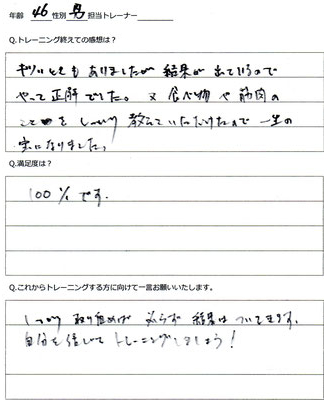 年齢 46 性別 男 担当トレーナー
Q.トレーニング終えての感想は？
キツいときもありましたが 結果が出ているので
やって正解でした。又 食べ物や筋肉の
ことをしっかり教えていただけたので一生の
宝になりました。
Q.満足度は？
100%です。
Q.これからトレーニングする方に向けて一言お願いいたします。
しっかり取り組めば 必らず 結果はついてきます。
自分を信じてトレーニングしましょう！